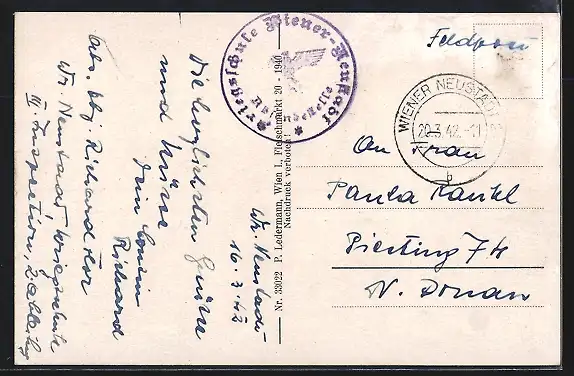 Feldpost
Kriegsschule Wiener-Neustadt
WIENER NEUSTADT
20.3.42.-11
b
An Frau
Paula Kankl
Piesting 74
N. Donau
Nr. 33022 P. Ledermann, Wien I., Fleischmarkt 20 - 1940
Nachdruck verboten!
Wr. Neustadt
16.3.42
Die herzlichsten Grüsse
und Küsse
Dein
Richard
Abs. Richard
Wr. Neustadt, Kriegsschule
III. Inspektion,